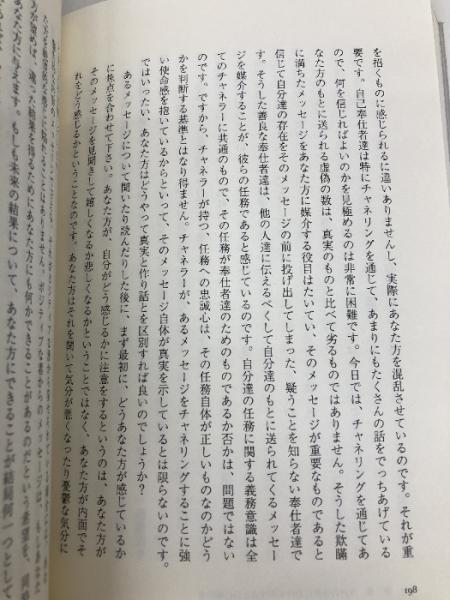 を招くものに感じられるに違いありませんし、実際にあなた方を混乱させているのです。それが重
要です。自己奉仕者達は特にチャネリングを通じて、あまりにもたくさんの話をでっちあげている
ので、何を信じればよいのかを見極めるのは非常に困難です。今日では、チャネリングを通じてあ
なた方のもとに送られる虚偽の数は、真実のものと比べて劣るものではありません。そうした欺瞞
に満ちたメッセージをあなた方に媒介する役目はたいてい、そのメッセージが重要なものであると
信じて自分達の存在をそのメッセージの前に投げ出してしまった、疑うことを知らない奉仕者達で
す。そうした善良な奉仕者達は、他の人達に伝えるべくして自分達のもとに送られてくるメッセー
ジを媒介することが、彼らの任務であると感じているのです。自分達の任務に関する義務意識は全
てのチャネラーに共通のもので、その任務が奉仕者達のためのものであるか否かは、問題ではない
のです。ですから、チャネラーが持つ、任務への忠誠心は、その任務自体が正しいものなのかどう
かを判断する基準とはなり得ません。チャネラーが、あるメッセージをチャネリングすることに強
い使命感を抱いているからといって、そのメッセージ自体が真実を示しているとは限らないのです。
ではいったい、あなた方はどうやって真実と作り話とを区別すれば良いのでしょうか?
あるメッセージについて聞いたり読んだりした後に、まず最初に、どうあなた方が感じているか
に焦点を合わせて下さい。あなた方が、自分がどう感じるかに注意をするということは、あなた方が
そのメッセージを見聞きして嬉しくなるか悲しくなるかということではなく、あなた方が内面でそ
れをどう感じるかということなのです。あなた方はそれを聞いて気分が悪くなったり憂鬱な気分に
198
あなた方に与えます。もしも未来の結果について、あなた方にできることが結局何一つとして